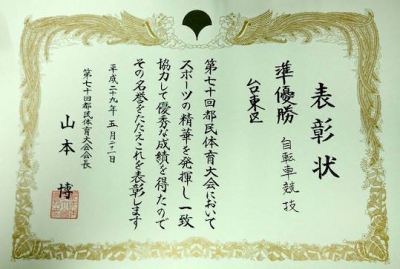 表彰状
自転車競技
準優勝
台東区
第七十回都民体育大会において
スポーツの精華を発揮し一致
協力して優秀な成績を得たので
その名誉をたたえこれを表彰します
平成二十九年五月二十一日
第七十回都民体育大会会長
山本博